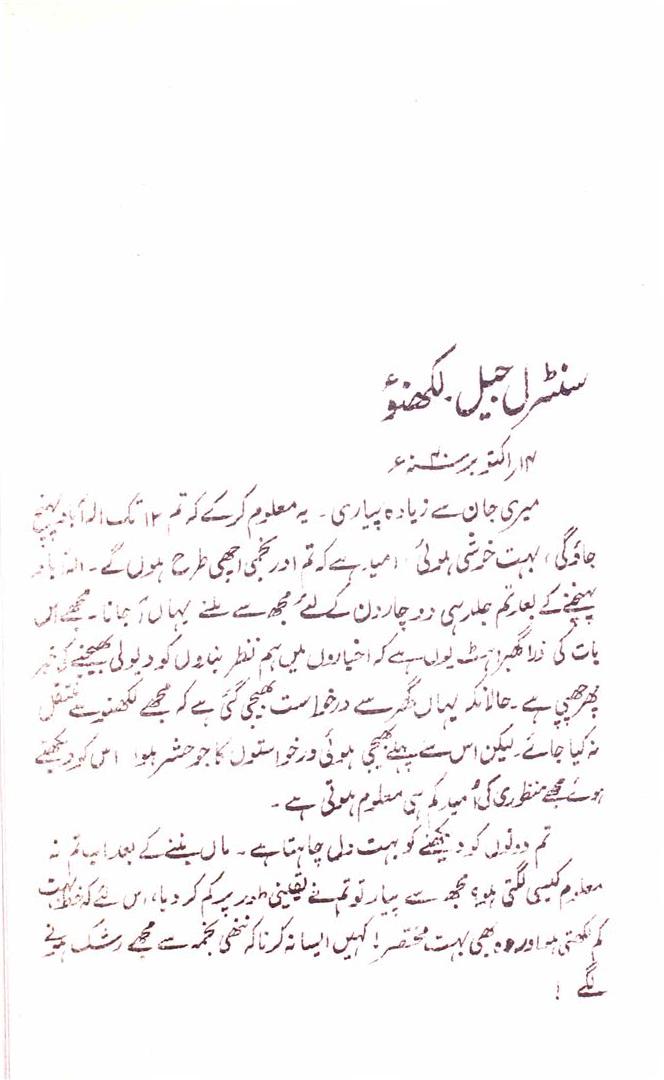 سنٹرل جیل۔ لکھنوٴ
۱۴؍ اکتوبر سنہ ۴۰ء
میری جان سے زیادہ پیاری۔ یہ معلوم کرکے کہ تم ۱۲ تک الہ آباد پہنچ
جاؤ گی، بہت خوشی ہوئی، امید ہے کہ تم اور نجمی اچھی طرح ہوں گے۔ الہ آباد
پہنچنے کے بعد تم جلد ہی دو چار دن کے لئے مجھ سے ملنے یہاں آ جانا۔ مجھے اس
بات کی ذرا گھبراہٹ یوں ہے کہ اخباروں میں ہم نظر بندوں کو دیولی بھیجنے کی خبر
پھر چھپی ہے۔ حالانکہ یہاں گھر سے درخواست بھیجی گئی ہے کہ مجھے لکھنؤ سے منتقل
نہ کیا جائے۔ لیکن اس سے پہلے بھیجی ہوئی درخواستوں کا جو حشر ہوا اس کو دیکھتے
ہوئے مجھے منظوری کی اُمید کم ہی معلوم ہوتی ہے۔
تم دونوں کو دیکھنے کو بہت دل چاہتا ہے۔ ماں بننے کے بعد اب تم نہ
معلوم کیسی لگتی ہو؟ مجھ سے پیار تو تم نے یقینی طور پر کم کر دیا، اس لئے کہ خط بہت
کم لکھتی ہو اور وہ بھی بہت مختصر! کہیں ایسا نہ کرنا کہ ننھی نجمہ سے مجھے رشک ہونے
لگے !